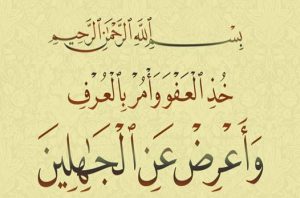 بِسْمِ ٱللَّهِ ٱلرَّحْمَٰنِ ٱلرَّحِيمِ
خُذِ ٱلْعَفْوَ وَأْمُرْ بِٱلْعُرْفِ
وَأَعْرِضْ عَنِ ٱلْجَٰهِلِينَ